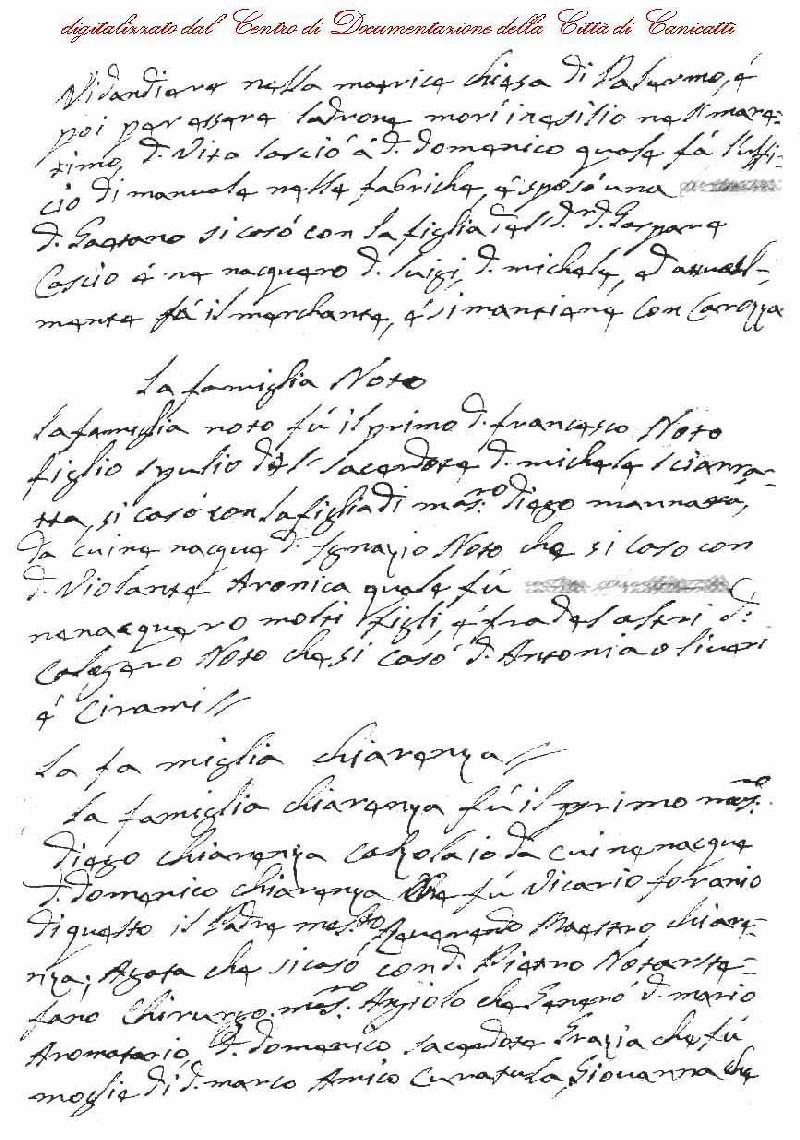 digitalizzato dal Centro di Documentazione della Città di Canicattì
Vidandiere nella matrice chiesa di Palermo, é
poi per essere ladrone morì in esilio nell mare-
timo, d. Vito lasció á d. domenico quale fá l'uffi-
cio di manuale nelle fabriche, é sposó una
d. Gaetano si casó con la figlia del d.r d. Gaspare
Cascio é ne nacquero d. luigi, d. michele, ed attual-
mente fá il merchante, é si mantiene con Carozza
La famiglia Noto
La famiglia noto fú il primo d. francesco Noto
figlio spulio dell sacerdote d. michele sciarra-
tta, si casó con la figlia di mas.ro diego mannara,
da cui ne nacque d. Ignazio Noto che si caso con
d. Violante Aronica quale fú
ne nacquero molti figli, é fra del altri d:
Calogero Noto che si casó d. Antonia oliveri
é Cirami//
La famiglia chiarenza//
La famiglia chiarenza fú il primo mas.ro
diego chiarenza calzolaio da cui ne nacque
d. domenico chiarenza che fú Vicario foranio
di questo il Padre mol.to Reverendo Maestro chiare-
nza; Agata che si casó con d. Pietro Notarste-
fano Chirurgo. mas.ro Angiolo che Generó d. mario
Aromatario, d. domenico sacerdote Grazia che fú
moglie di d. marco Amico Curatula, Giovanna che